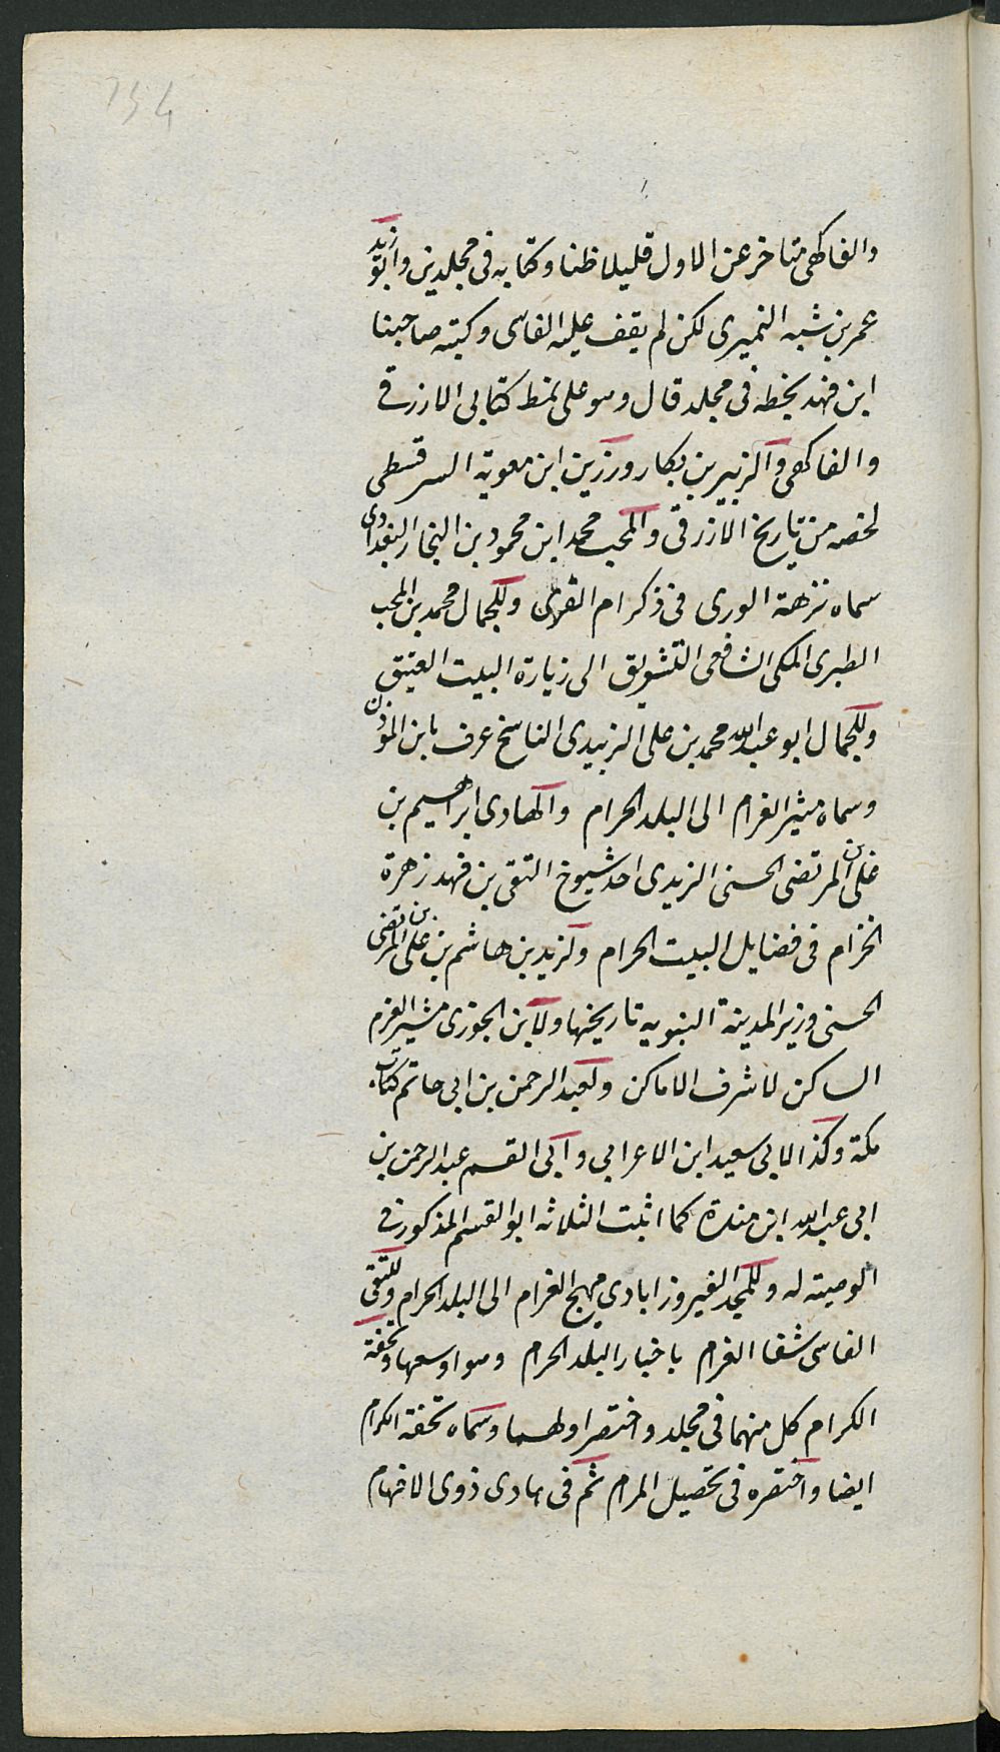 154
والفاكهى متاخر عن الاول قليلا ظنا وكتابه فى مجلدين وابو زيد
عمر بن شبه النميرى لكن لم يقف عليه الفاسى وكتبه صاحبنا
ابن فهد بخطه فى مجلد قال وهو على نمط كتابى الازرقى
والفاكهى والزبير بن بكار ورزين ابن معوية السرقسطى
لخصه من تاريخ الازرقى والمحب محمد ابن محمود بن النجار البغدادى
سماه نزهة الورى فى ذكر ام القرى وللجمال محمد بن المحب
الطبرى المكى الشافعى التشويق الى زيارة البيت العتيق
وللجمال ابو عبدالله محمد بن على الزبيدى الناسخ عرف بابن الموذن
وسماه مثير الغرام الى البلد الحرام والهادى ابراهيم بن
على بن المرتضى الحسنى الزيدى احد شيوخ التقى بن فهد زهرة
الخزام فى فضايل البيت الحرام ولزيد بن هاشم بن على بن المرتضى
الحسنى وزير المدينة النبويه تاريخها ولابن الجوزى مثير الغرم
الساكن لاشرف الاماكن ولعبد الرحمن بن ابى حاتم كتاب
مكة وكذا لابى سعيد ابن الاعرابي وابى القسم عبد الرحمن بن
ابى عبدالله ابن مندة كما اثبت الثلاثه ابو القسم المذكور فى
الوصيته له وللمجد الفيروزابادى مهيج الغرام الى البلد الحرام وللتقى
الفاسى شفا الغرام باخبار البلد الحرام وهو اوسعها وتحفة
الكرام كل منهما فى مجلد واختصر اولهما وسماه تحفة الكرام
ايضا واختصره فى تحصيل المرام ثم فى هادى ذوى الافهام